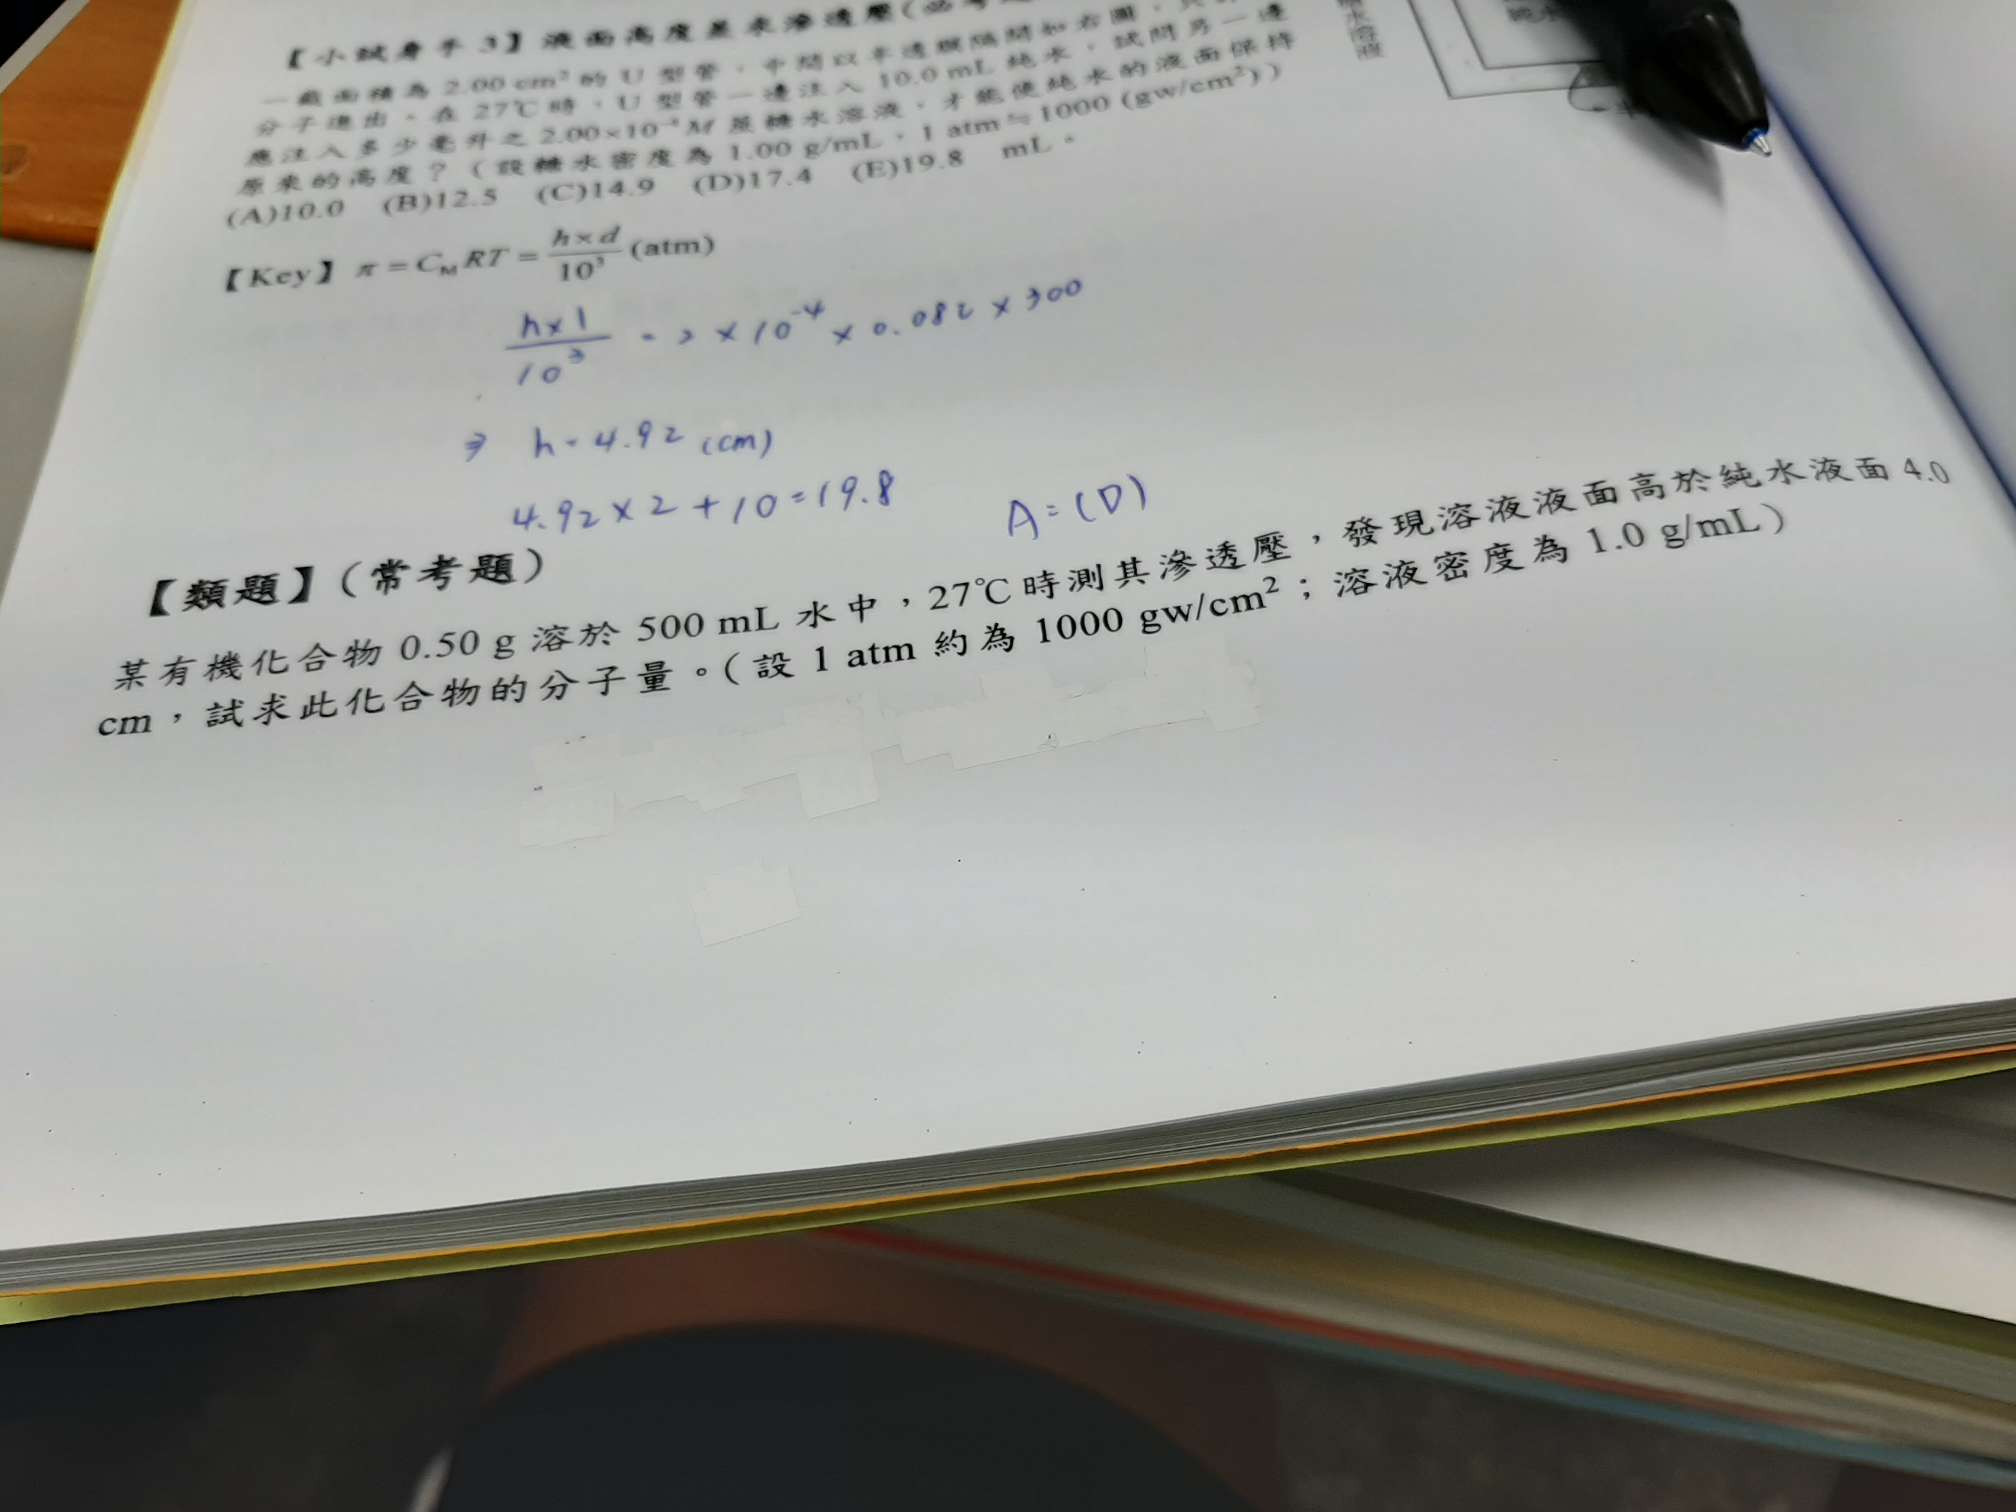 【小試身手 3】液面高度差求滲透壓(必考
一截面積為 2.00 cm² 的 U 型管，中間以半透膜隔開如右圖，
分子進出。在 27℃ 時，U 型管一邊注入 10.0 mL 純水，試問另一邊
應注入多少毫升之 2.00×10⁻⁴ M 蔗糖水溶液，才能使純水的液面保持
原來的高度？（設糖水密度為 1.00 g/mL，1 atm≒1000 (gw/cm²)）
(A)10.0 (B)12.5 (C)14.9 (D)17.4 (E)19.8 mL。
水溶液
純水
【Key】π = C_M RT = h×d/10³ (atm)
h×1/10³ = 2 × 10⁻⁴ × 0.082 × 300
⇒ h = 4.92 (cm)
4.92 × 2 + 10 = 19.8 A = (D)
【類題】（常考題）
某有機化合物 0.50 g 溶於 500 mL 水中，27℃ 時測其滲透壓，發現溶液液面高於純水液面 4.0
cm，試求此化合物的分子量。（設 1 atm 約為 1000 gw/cm²；溶液密度為 1.0 g/mL）